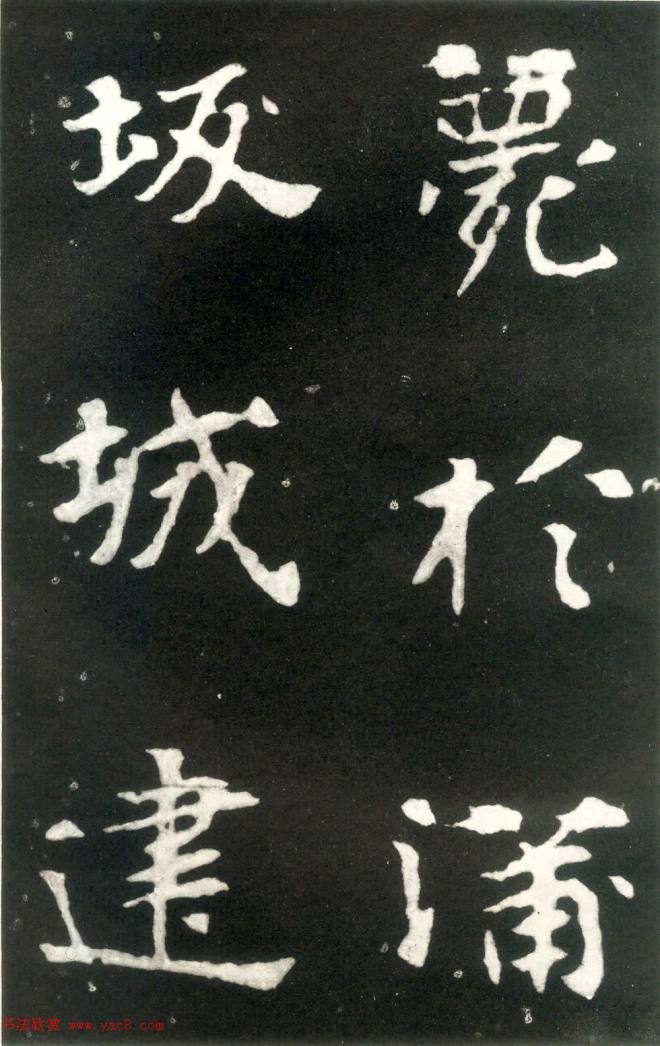 薨於蒲
坂城建
书法欣赏 www.yac8.com